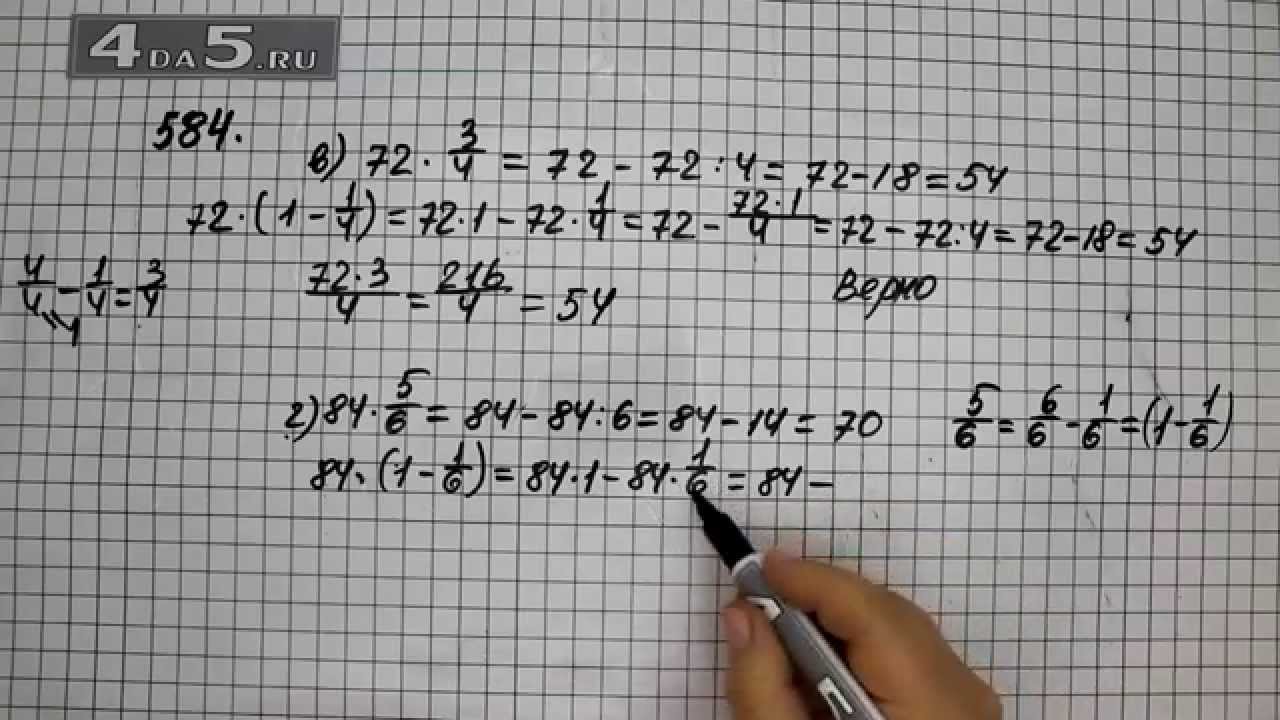 4DA5.RU
584.
в) 72 · 3/4 = 72 - 72 : 4 = 72 - 18 = 54
72 · (1 - 1/4) = 72 · 1 - 72 · 1/4 = 72 - 72·1/4 = 72 - 72:4 = 72 - 18 = 54
4/4 - 1/4 = 3/4
72·3/4 = 216/4 = 54
Верно
г) 84 · 5/6 = 84 - 84 : 6 = 84 - 14 = 70
5/6 = 6/6 - 1/6 = (1 - 1/6)
84 · (1 - 1/6) = 84 · 1 - 84 · 1/6 = 84 -